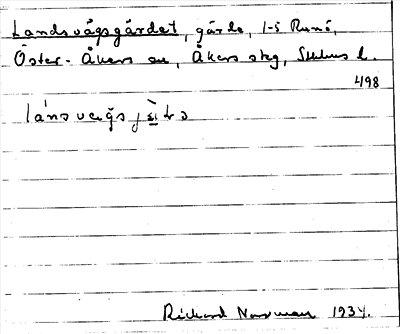 Landsvägsgärdet, gärde, 1-5 Runö,
Öster-Åkers sn, Åkers skg, Sthlms l.
498
Richard Norrman 1934.